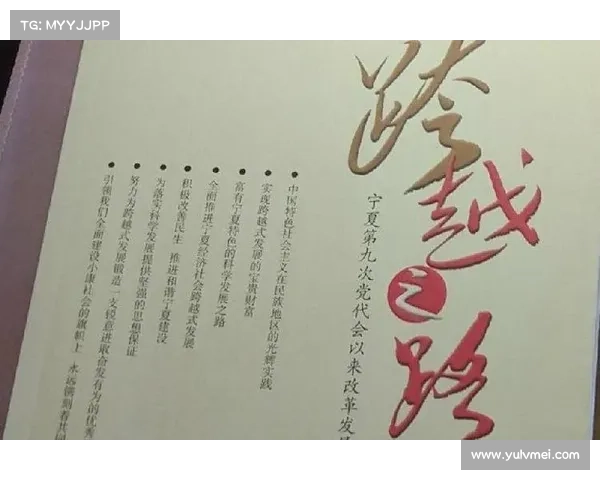 TG: MYYJJPP
跨越之路
宁夏第九次党代会以来改革发
中国特色社会主义在民族地区的光辉实践
实现跨越式发展的宝贵财富
富有宁夏特色的科学发展之路
全面推进宁夏经济社会跨越式发展
积极改善民生 推进和谐宁夏建设
为落实科学发展提供坚强的思想保证
努力为跨越式发展锻造一支锐意进取奋发有为的优秀
引领我们全面建设小康社会的旗帜上 永远镌刻着共
www.yulvmei.com